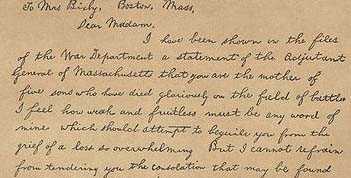 To Mrs Bixby, Boston, Mass,
Dear Madam.
I have been shown in the files
of the War Department a statement of the Adjutant
General of Massachusetts that you are the mother of
five sons who have died gloriously on the field of battle
I feel how weak and fruitless must be any word of
mine which should attempt to beguile you from the
grief of a loss so overwhelming But I cannot refrain
from tendering you the consolation that may be found